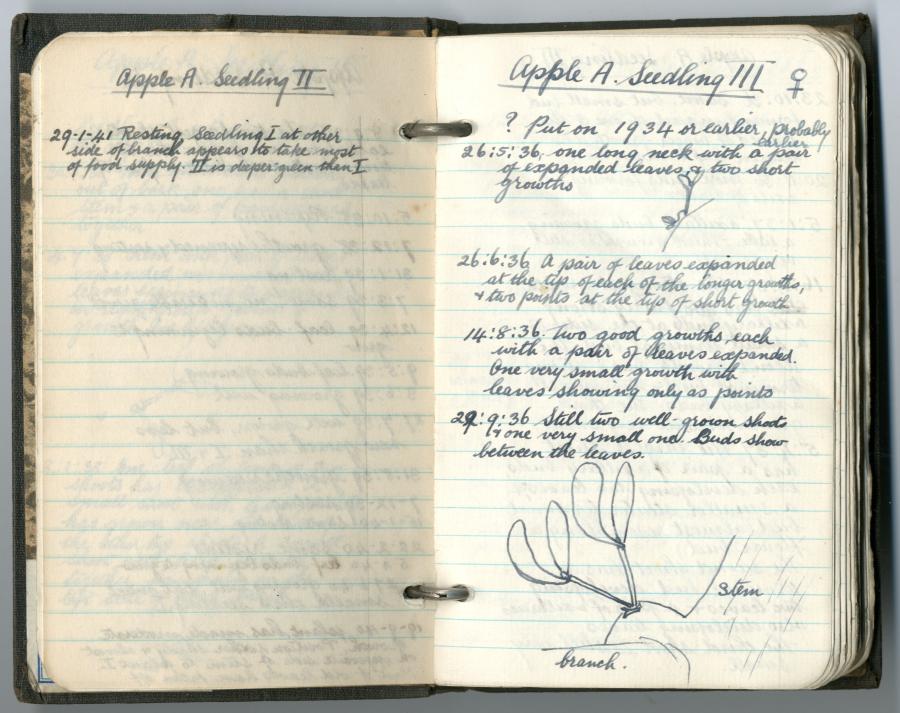 Apple A. Seedling II
29-1-41 Resting, Seedling I at other
side of branch appears to take most
of food supply. II is deeper green than I
Apple A. Seedling III ♀
? Put on 1934 or earlier, probably
earlier
26:5:36, one long neck with a pair
of expanded leaves, & two short
growths
26:6:36 A pair of leaves expanded
at the tip of each of the longer growths,
& two points at the tip of short growth
14:8:36. Two good growths, each
with a pair of leaves expanded.
One very small growth with
leaves showing only as points
29:9:36 Still two well-grown shoots
& one very small one. Buds show
between the leaves.
stem
branch.